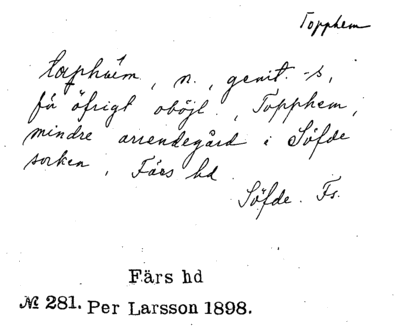 Topphem
tåphæm, n., genit. -s,
för öfrigt oböjl., Topphem,
mindre arrendegård i Söfde
socken, Färs hd
Söfde. Fs.
Färs hd
№ 281. Per Larsson 1898.